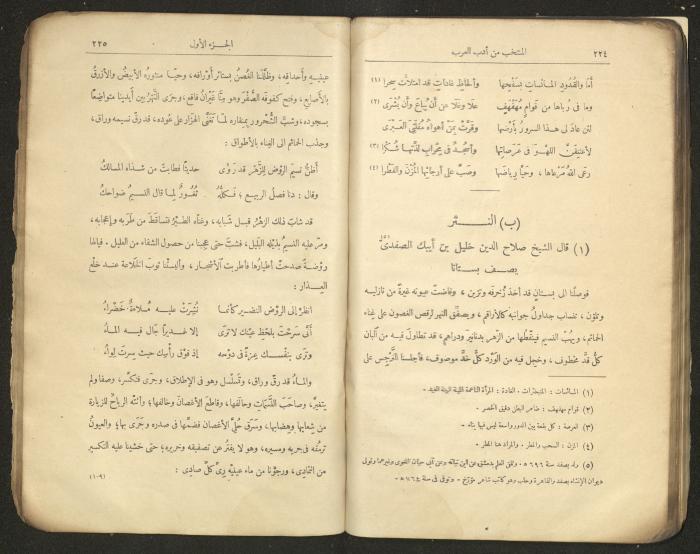 ٢٢٤
المنتخب من أدب العرب
أمَا والقُدودِ المائسات بِسَفْحِها وألحاظِ غاداتٍ قد امتلأتْ سِحرا (١)
وما فى رُباها من قَوامٍ مُهَفْهَفٍ علا وغلا عن أن يُباعَ وأن يُشْرَى (٢)
لئن عاد لى هذا السرورُ بأرْضِها وقَرَّتْ بمَنْ أهواهُ مُقْلَتِىَ العَبْرَى
لأعتنِقَنَّ اللهوَ فى عَرَصاتِها وأسْجُدُ فى محراب لذَّتِها شُكرا (٣)
رعَى اللهُ مَرْعاها، وحيّا رِياضَها وصَبَّ على أرجائها المُزْنَ والقَطْرا (٤)
(ب) النـــثر
(١) قال الشيخ صلاح الدين خليل بن أيبك الصفدىّ
يصف بستانا
فوصلْنا الى بستانٍ قد أخذ زُخرفَه وتزيَّن، وفاضتْ عيونُه غيرةً من نازليه
وتلوَّن، تنساب جداولُ جوانبِه كالأراقم، ويصفِّق النهر لرقص الغصون على غناء
الحمائم، ويهُبّ النسيم فينقِّطها من الزهر بدنانيرَ ودراهم، قد تطاول فيه من اللبان
كلُّ قدّ مخطوف، وخجِل فيه من الورد كلُّ خدّ موصوف، فأجلسنا النَّرْجِس على
(١) المائسات : المتبخترات . الغادة : المرأة الناعمة اللينة البينة الغيد .
(٢) قوام مهفهف : ضامر البطن دقيق الخصر .
(٣) العرصة : كل بقعة بين الدور واسعة ليس فيها بناء .
(٤) المزن : السحب والمطر . والمراد هنا المطر .
(٥) ولد بصفد سنة ٦٩٦ هـ . وتلقى العلم بدمشق عن ابن نباتة وعن أبى حيان النحوى وغيرهما وتولى
ديوان الإنشاء بصفد والقاهرة وحلب وهو كاتب شاعر مؤرّخ . وتوفى فى سنة ٧٦٤ هـ .
الجزء الأول
٢٢٥
عينيه وأحداقه، وظلَّلنا الغُصنُ بستائر أوراقه، وحيّا منثورُه الأبيضُ والأزرقُ
بالأصابع، وفتح كفوفَه الصُّفْرَ وهو بِنّا غَيْرانُ فاقع، وجرَى النهرُ بين أيدينا متواضِعًا
بسجوده، وشبَّ الشُّحرور بمنقاره لمّا تغنَّى الهزار على عُوده، قد رقّ نسيمه وراق،
وجذب الحمائم الى الغناء بالأطواق :
أظنّ نسيمَ الرَّوْضِ للزَّهْر قد رَوَى حديثا فطابتْ من شذاه المسالكُ
وقال : دنا فصلُ الربيع ؛ فكلُّه ثُغورٌ لِما قال النسيمُ ضواحكُ
قد شاب ذلك الزهرُ قبل شبابه، وغنّاه الطيرُ فتساقط من طَرَبه وإعجابه،
ومرّ عليه النسيمُ بذيله البَليل، فشفَتْ حتى عجِبنا من حصول الشفاء من العليل، فيالها
روْضةً صدحتْ أطيارُها فأطربت الأشجار، وألبستْنا ثوبَ الخلاعة عند خلْع
العِذار :
انظر إلى الروْض النضير كأنما نُشِرَتْ عليه مُلاءةٌ خَضْراءُ
أنَّى سَرَحْتَ بلحْظِ عينِك لا ترَى إلا غديرًا جال فيه الماءُ
وترَى بنفسك عِزةً فى دوْحه إذ فوْق رأسِك حيث سِرتَ لِواءُ
والماءُ قد رقّ وراق، وتسلْسل وهو فى الإطلاق، وجرَى فتكسَّر، وصفا ولم
يتغيَّر، وصاحبَ النَّسَماتِ وحالفها، وقاطع الأغصانَ وخالفها؛ وأتتْه الرياحُ للزيارة
من شِعابها وهِضابها، وسرَق حُلِىَّ الأغصانِ فضمَّها فى صدره وجَرَى بها؛ والعيونُ
ترمُقه فى جريه ومسيره، وهو لا يفتُر عن تصفيقه وخريره؛ حتى خشِينا عليه التكسير
من التمادى، ورجَوْنا من ماء عينيْه رِىَّ كلِّ صادِى :
(٩-١)